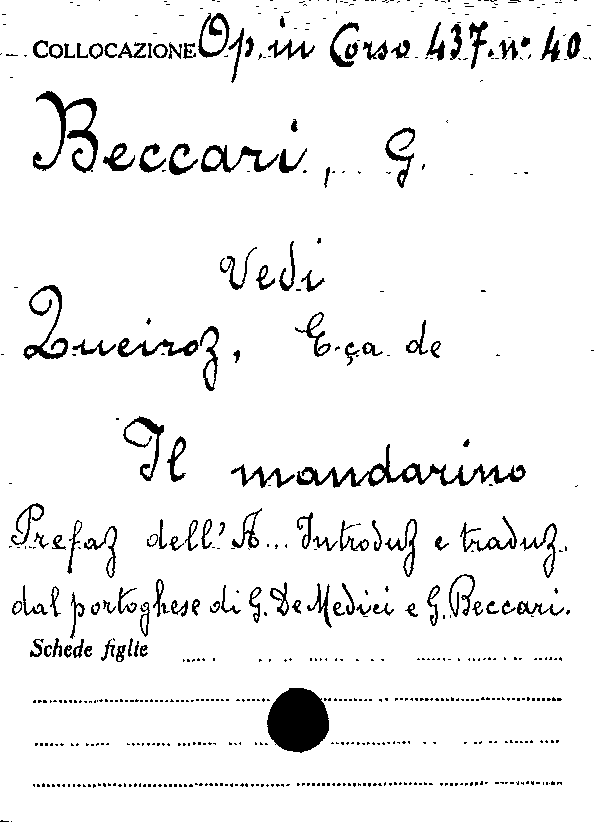 COLLOCAZIONE Op. in Corso 437. n° 40
Beccari, G.
Vedi
Queiroz, Eça de
Il mandarino
Prefaz dell'A... Introduz e traduz.
dal portoghese di G. De Medici e G. Beccari.
Schede figlie